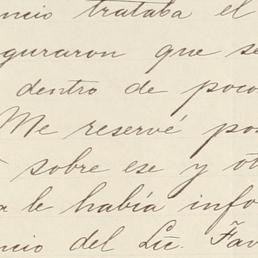 ncio trataba el
guraron que se
dentro de poco
Me reservé po
sobre ese y ot
a le había info
ncio del Lic. Fav